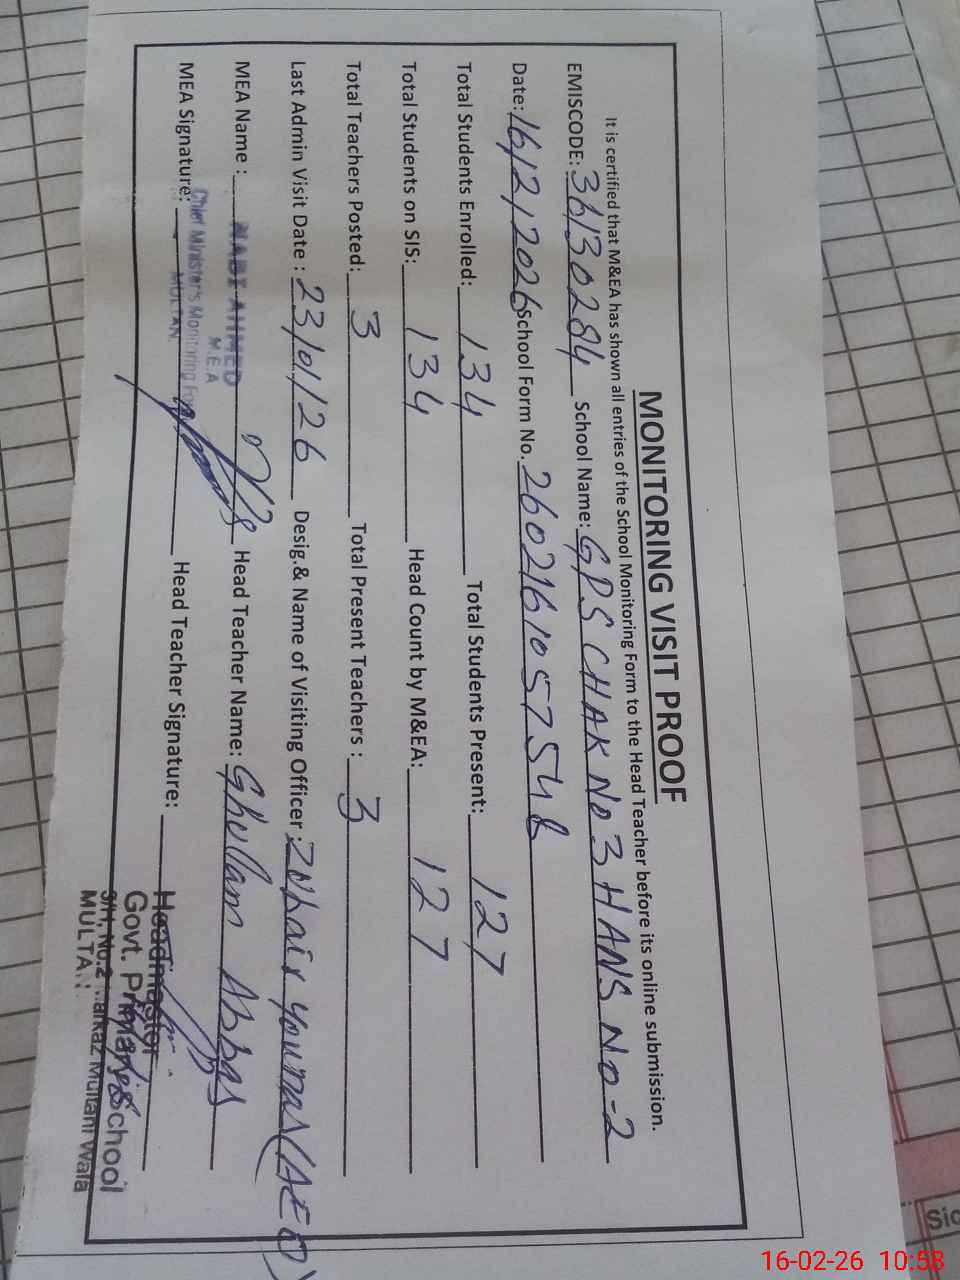 MONITORING VISIT PROOF
It is certified that M&EA has shown all entries of the School Monitoring Form to the Head Teacher before its online submission.
EMISCODE: 36130284 School Name: GPS CHAK No 3 HANS No-2
Date: 16/2/2026 School Form No. 2602161057548
Total Students Enrolled: 134 Total Students Present: 127
Total Students on SIS: 134 Head Count by M&EA: 127
Total Teachers Posted: 3 Total Present Teachers : 3
Last Admin Visit Date : 23/01/26 Desig.& Name of Visiting Officer : Zuhair Younas (AEO)
MEA Name : NABI AHMED Head Teacher Name: Ghulam Abbas
M.E.A
Chief Minister's Monitoring
MULTAN
MEA Signature: Head Teacher Signature:
Headmaster
Govt. Primary School
No.2 Markaz Multani Wala
MULTAN
Sig
16-02-26 10:53